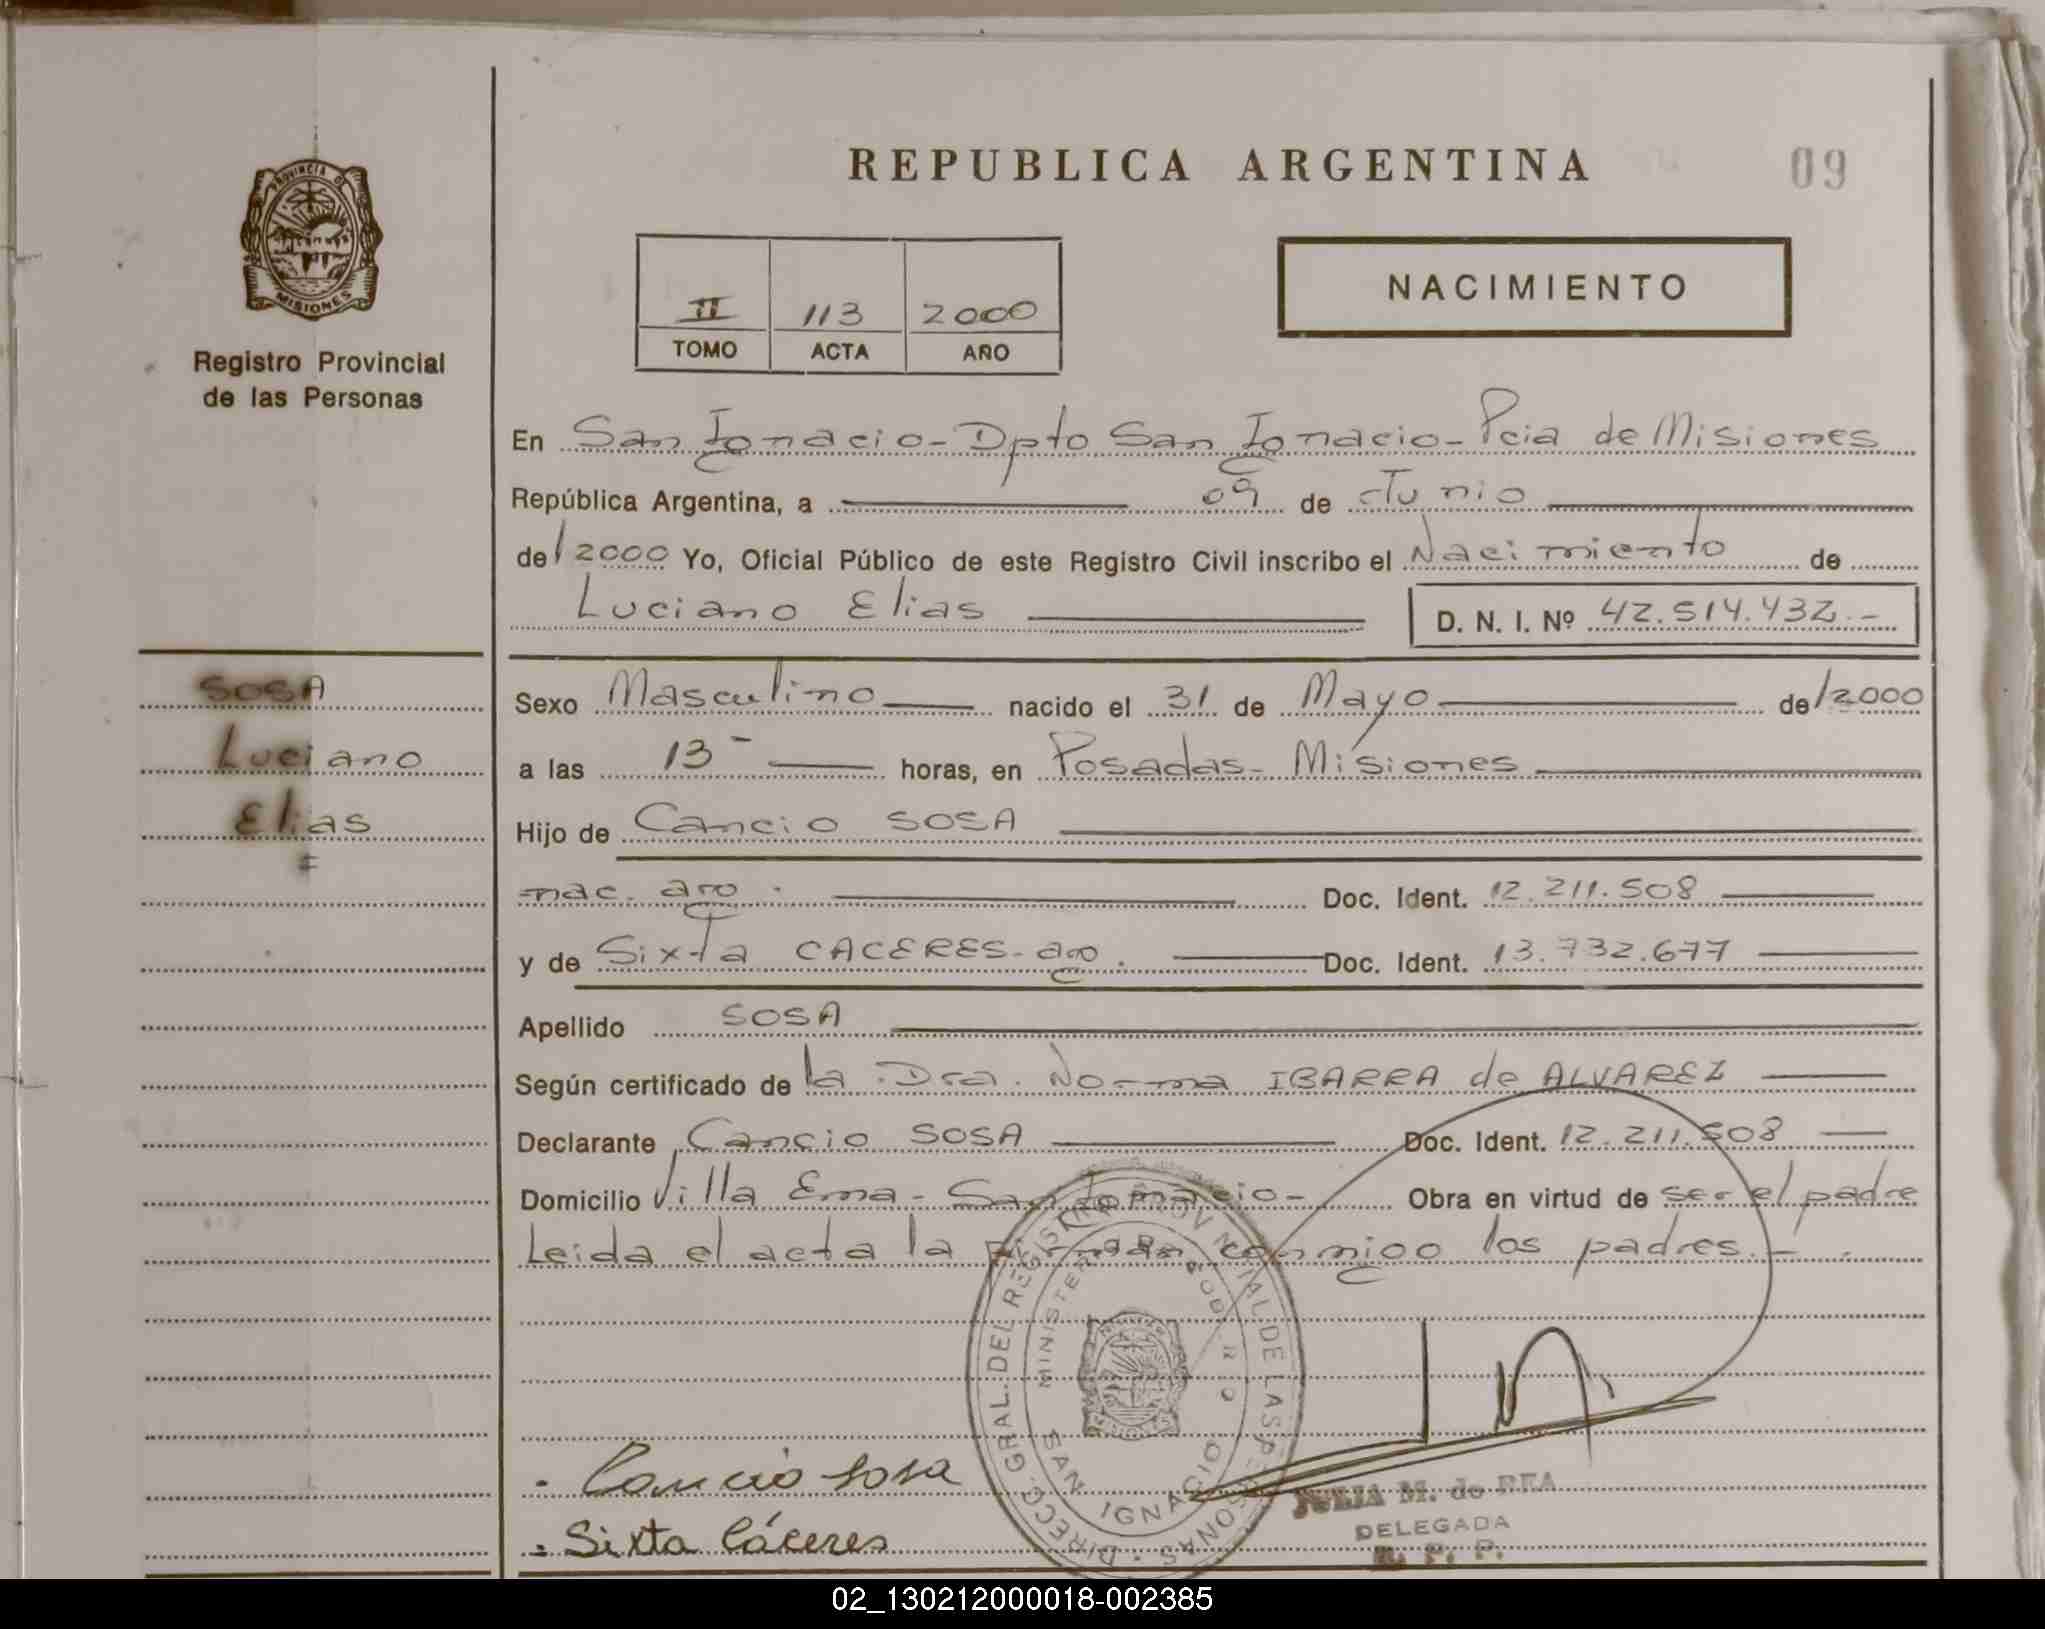 REPUBLICA ARGENTINA
09
PROVINCIA DE
MISIONES
Registro Provincial
de las Personas
II 113 2000
TOMO ACTA AÑO
NACIMIENTO
En San Ignacio - Dpto San Ignacio - Pcia de Misiones
República Argentina, a 09 de Junio
de/2000 Yo, Oficial Público de este Registro Civil inscribo el Nacimiento de
Luciano Elias
D. N. I. Nº 42.514.432.-
SOSA
Luciano
Elias
Sexo Masculino nacido el 31 de Mayo de/2000
a las 13- horas, en Posadas - Misiones
Hijo de Cancio SOSA
nac. arg. Doc. Ident. 12.211.508
y de Sixta CACERES - arg. Doc. Ident. 13.732.677
Apellido SOSA
Según certificado de la Dra. Norma IBARRA de ALVAREZ
Declarante Cancio SOSA Doc. Ident. 12.211.508
Domicilio Villa Ema - San Ignacio - Obra en virtud de ser el padre
Leida el acta la firman conmigo los padres.-
Cancio Sosa
Sixta Cáceres
DIRECC. GRAL. DEL REGISTRO PROVINCIAL DE LAS PERSONAS
SAN IGNACIO
JULIA M. de REA
DELEGADA
R. P. P.
02_130212000018-002385